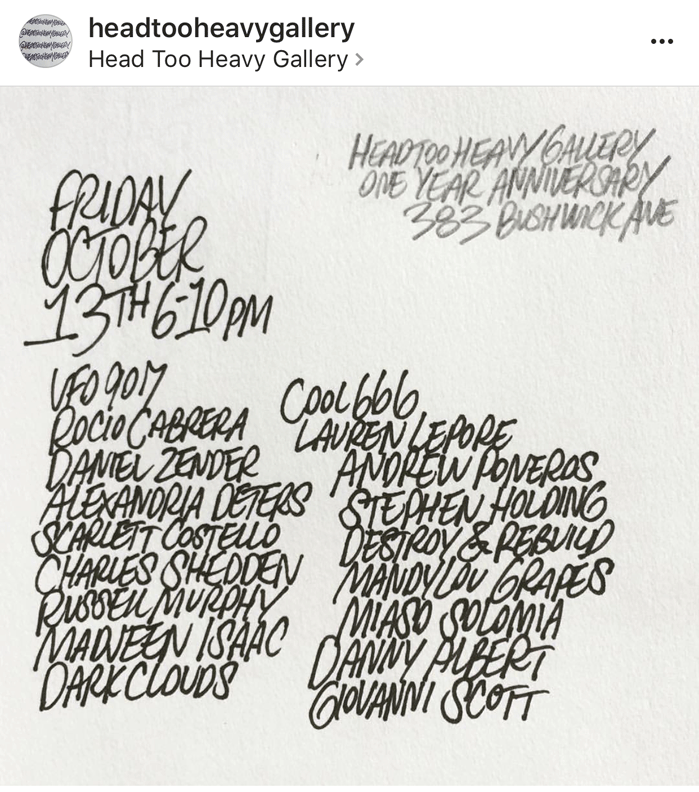 headtooheavygallery
Head Too Heavy Gallery >
HEADTOOHEAVY GALLERY
ONE YEAR ANNIVERSARY
383 BUSHWICK AVE
FRIDAY
OCTOBER
13TH 6-10PM
UFO 907
ROCIO CABRERA
DANIEL ZENDER
ALEXANDRIA DETERS
SCARLETT COSTELLO
CHARLES SHEDDEN
RUSSELL MURPHY
MADJEEN ISAAC
DARK CLOUDS
COOL666
LAUREN LEPORE
ANDREW PONEROS
STEPHEN HOLDING
DESTROY & REBUILD
MANDYLOU GRAPES
MIASO SOLOMIA
DANNY ALBERT
GIOVANNI SCOTT